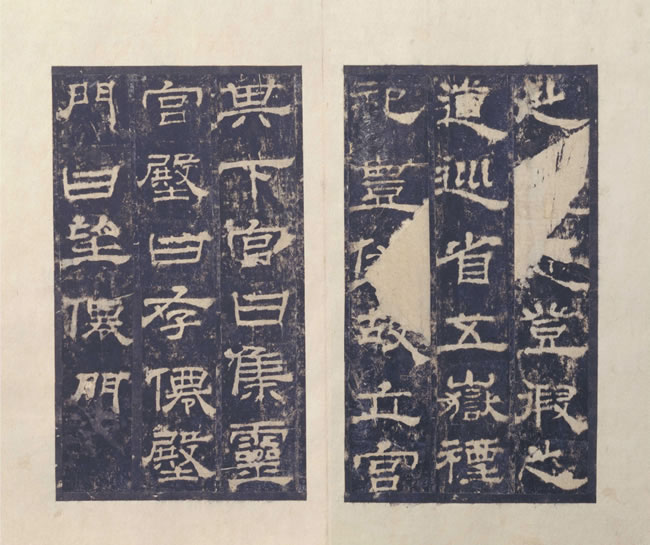 之登徦之
道巡省五嶽禋
祀豐備故立宮
其下宮曰集靈
宮殿曰存僊殿
門曰望僊門